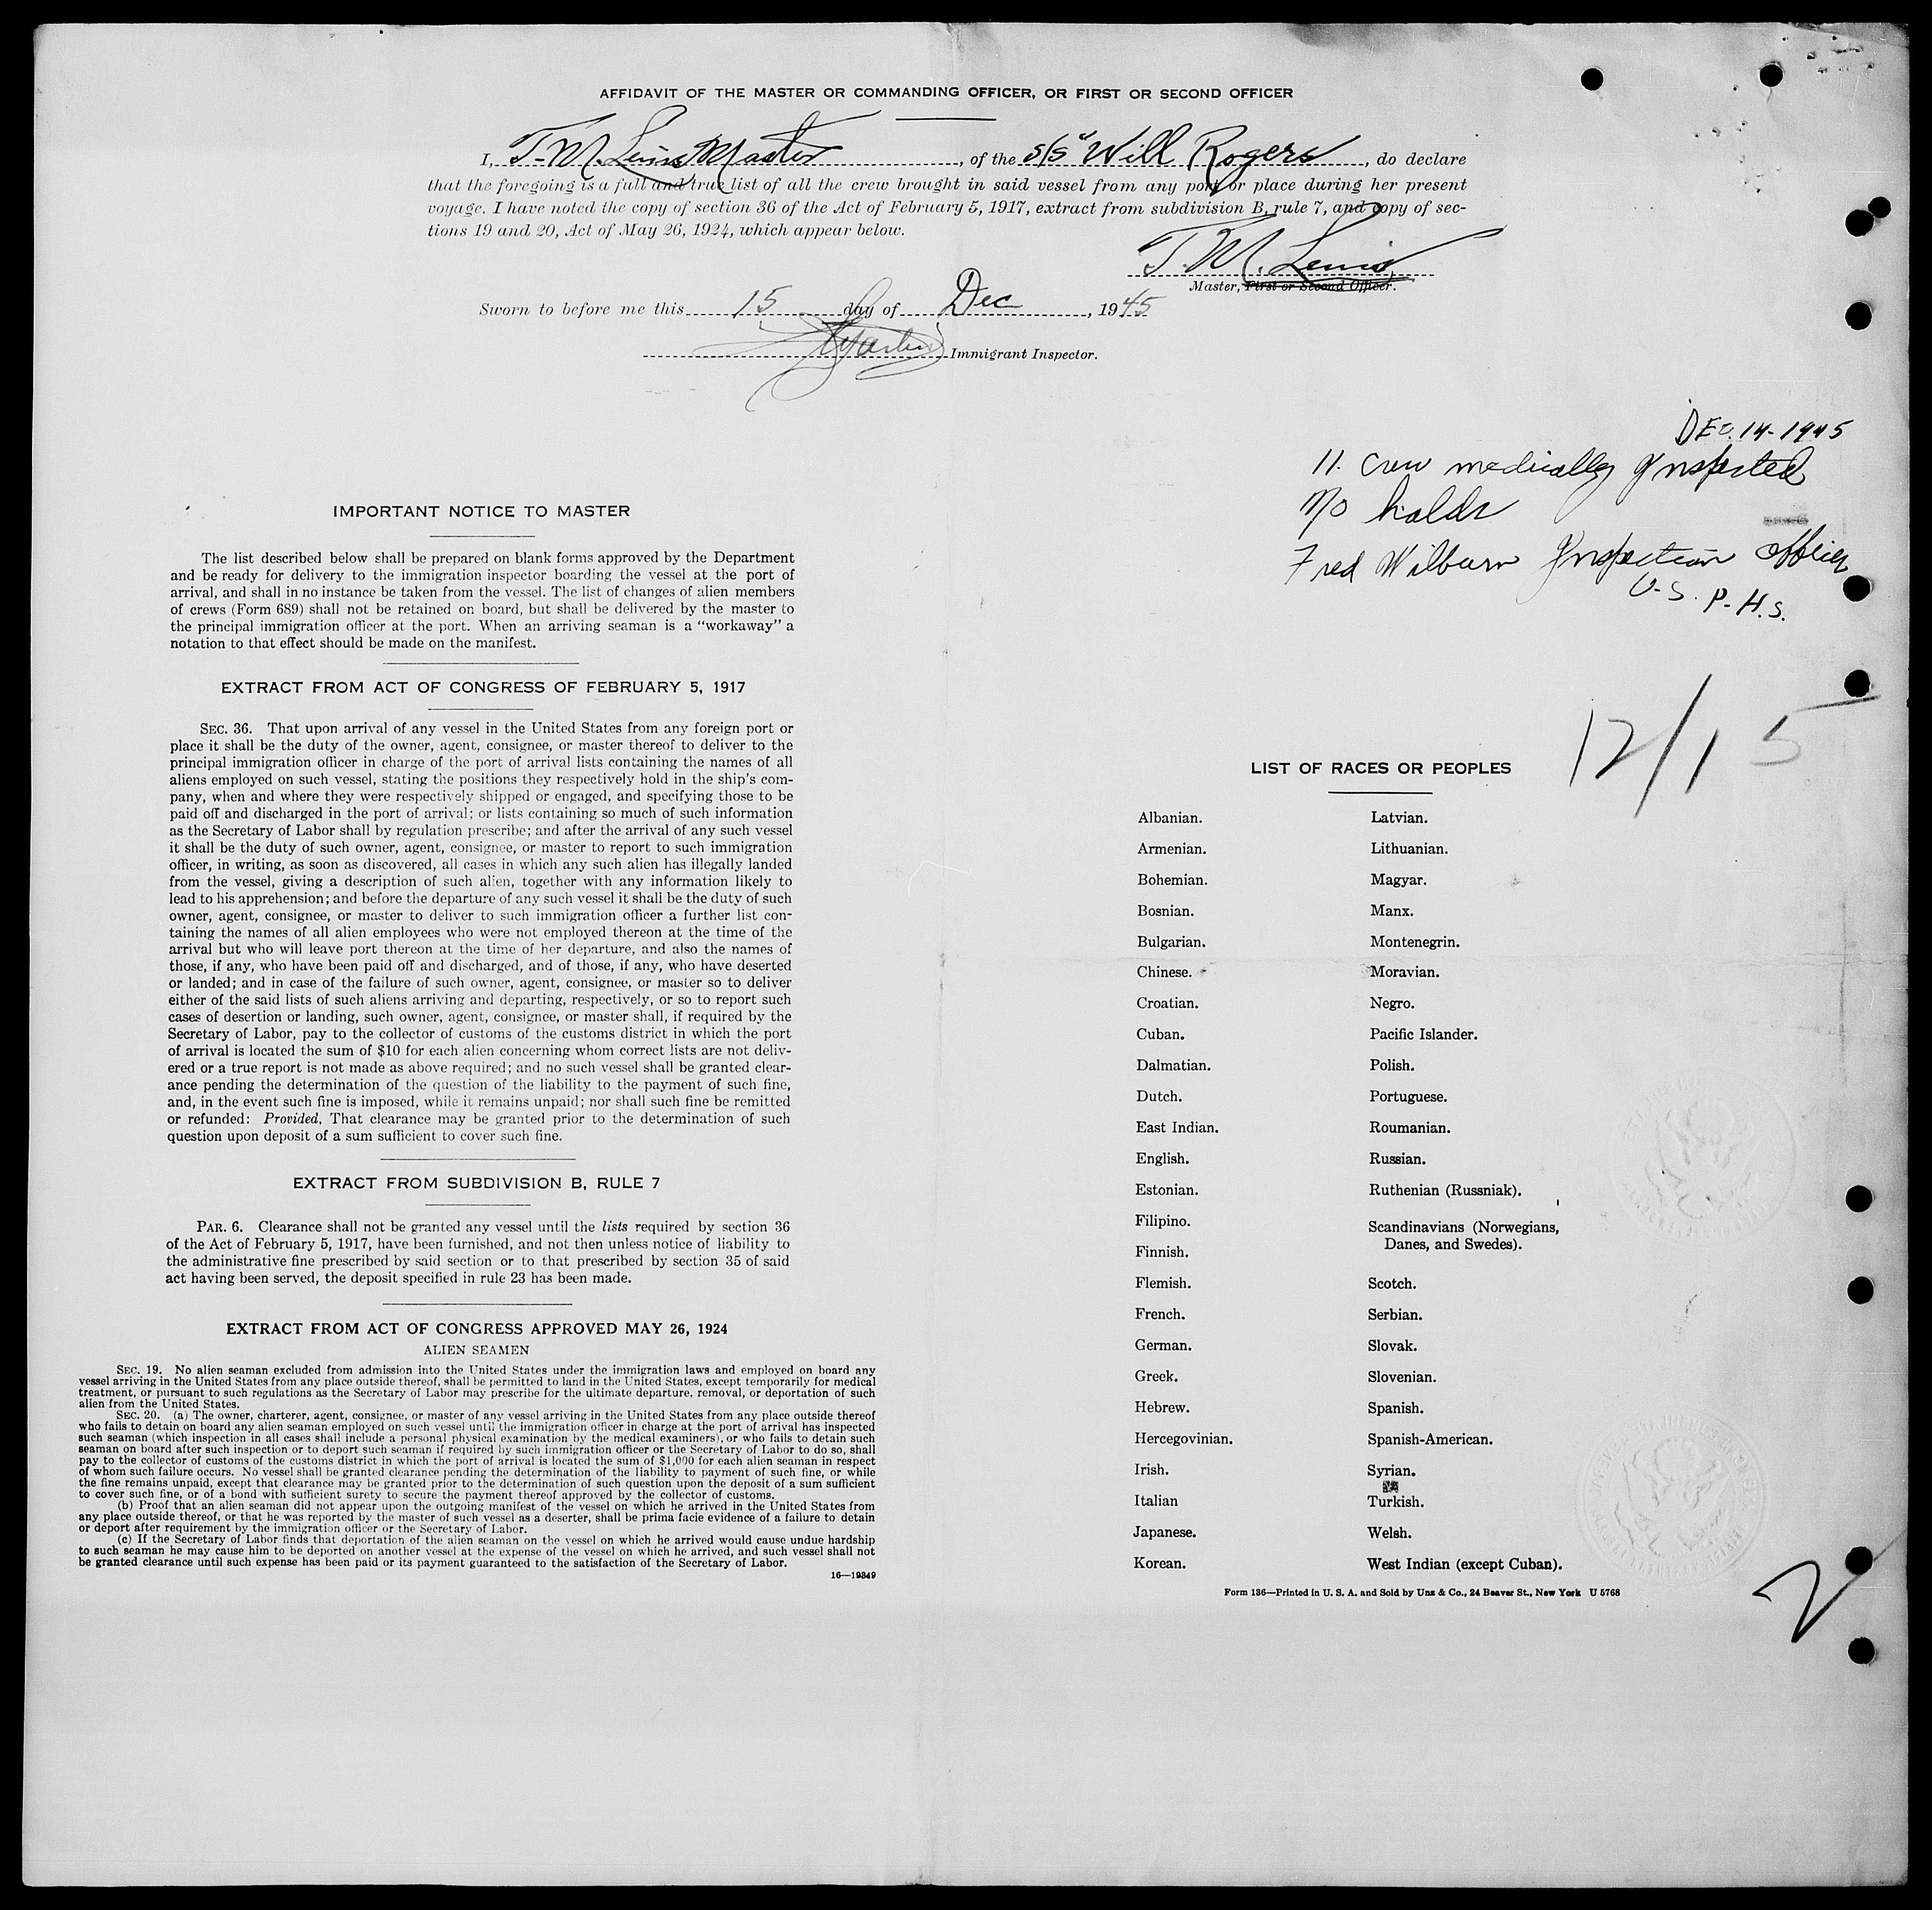 AFFIDAVIT OF THE MASTER OR COMMANDING OFFICER, OR FIRST OR SECOND OFFICER
I, T. M. Lewis Master, of the s/s "Will Rogers, do declare
that the foregoing is a full and true list of all the crew brought in said vessel from any port or place during her present
voyage. I have noted the copy of section 36 of the Act of February 5, 1917, extract from subdivision B, rule 7, and copy of sec-
tions 19 and 20, Act of May 26, 1924, which appear below.
T. M. Lewis
Master, First or Second Officer.
Sworn to before me this 15 day of Dec, 1945
Immigrant Inspector.
DEC. 14-1945
11. crew medically Inspected
No holds
Fred Wilburn Inspection Officer
U.S. P.H.S.
12/15
IMPORTANT NOTICE TO MASTER
The list described below shall be prepared on blank forms approved by the Department
and be ready for delivery to the immigration inspector boarding the vessel at the port of
arrival, and shall in no instance be taken from the vessel. The list of changes of alien members
of crews (Form 689) shall not be retained on board, but shall be delivered by the master to
the principal immigration officer at the port. When an arriving seaman is a "workaway" a
notation to that effect should be made on the manifest.
EXTRACT FROM ACT OF CONGRESS OF FEBRUARY 5, 1917
SEC. 36. That upon arrival of any vessel in the United States from any foreign port or
place it shall be the duty of the owner, agent, consignee, or master thereof to deliver to the
principal immigration officer in charge of the port of arrival lists containing the names of all
aliens employed on such vessel, stating the positions they respectively hold in the ship's com-
pany, when and where they were respectively shipped or engaged, and specifying those to be
paid off and discharged in the port of arrival; or lists containing so much of such information
as the Secretary of Labor shall by regulation prescribe; and after the arrival of any such vessel
it shall be the duty of such owner, agent, consignee, or master to report to such immigration
officer, in writing, as soon as discovered, all cases in which any such alien has illegally landed
from the vessel, giving a description of such alien, together with any information likely to
lead to his apprehension; and before the departure of any such vessel it shall be the duty of such
owner, agent, consignee, or master to deliver to such immigration officer a further list con-
taining the names of all alien employees who were not employed thereon at the time of the
arrival but who will leave port thereon at the time of her departure, and also the names of
those, if any, who have been paid off and discharged, and of those, if any, who have deserted
or landed; and in case of the failure of such owner, agent, consignee, or master so to deliver
either of the said lists of such aliens arriving and departing, respectively, or so to report such
cases of desertion or landing, such owner, agent, consignee, or master shall, if required by the
Secretary of Labor, pay to the collector of customs of the customs district in which the port
of arrival is located the sum of $10 for each alien concerning whom correct lists are not deliv-
ered or a true report is not made as above required; and no such vessel shall be granted clear-
ance pending the determination of the question of the liability to the payment of such fine,
and, in the event such fine is imposed, while it remains unpaid; nor shall such fine be remitted
or refunded: Provided, That clearance may be granted prior to the determination of such
question upon deposit of a sum sufficient to cover such fine.
EXTRACT FROM SUBDIVISION B, RULE 7
PAR. 6. Clearance shall not be granted any vessel until the lists required by section 36
of the Act of February 5, 1917, have been furnished, and not then unless notice of liability to
the administrative fine prescribed by said section or to that prescribed by section 35 of said
act having been served, the deposit specified in rule 23 has been made.
EXTRACT FROM ACT OF CONGRESS APPROVED MAY 26, 1924
ALIEN SEAMEN
SEC. 19. No alien seaman excluded from admission into the United States under the immigration laws and employed on board any
vessel arriving in the United States from any place outside thereof, shall be permitted to land in the United States, except temporarily for medical
treatment, or pursuant to such regulations as the Secretary of Labor may prescribe for the ultimate departure, removal, or deportation of such
alien from the United States.
SEC. 20. (a) The owner, charterer, agent, consignee, or master of any vessel arriving in the United States from any place outside thereof
who fails to detain on board any alien seaman employed on such vessel until the immigration officer in charge at the port of arrival has inspected
such seaman (which inspection in all cases shall include a personal physical examination by the medical examiners), or who fails to detain such
seaman on board after such inspection or to deport such seaman if required by such immigration officer or the Secretary of Labor to do so, shall
pay to the collector of customs of the customs district in which the port of arrival is located the sum of $1,000 for each alien seaman in respect
of whom such failure occurs. No vessel shall be granted clearance pending the determination of the liability to payment of such fine, or while
the fine remains unpaid, except that clearance may be granted prior to the determination of such question upon the deposit of a sum sufficient
to cover such fine, or of a bond with sufficient surety to secure the payment thereof approved by the collector of customs.
(b) Proof that an alien seaman did not appear upon the outgoing manifest of the vessel on which he arrived in the United States from
any place outside thereof, or that he was reported by the master of such vessel as a deserter, shall be prima facie evidence of a failure to detain
or deport after requirement by the immigration officer or the Secretary of Labor.
(c) If the Secretary of Labor finds that deportation of the alien seaman on the vessel on which he arrived would cause undue hardship
to such seaman he may cause him to be deported on another vessel at the expense of the vessel on which he arrived, and such vessel shall not
be granted clearance until such expense has been paid or its payment guaranteed to the satisfaction of the Secretary of Labor.
16—19349
LIST OF RACES OR PEOPLES
Albanian.
Armenian.
Bohemian.
Bosnian.
Bulgarian.
Chinese.
Croatian.
Cuban.
Dalmatian.
Dutch.
East Indian.
English.
Estonian.
Filipino.
Finnish.
Flemish.
French.
German.
Greek.
Hebrew.
Hercegovinian.
Irish.
Italian
Japanese.
Korean.
Latvian.
Lithuanian.
Magyar.
Manx.
Montenegrin.
Moravian.
Negro.
Pacific Islander.
Polish.
Portuguese.
Roumanian.
Russian.
Ruthenian (Russniak).
Scandinavians (Norwegians,
Danes, and Swedes).
Scotch.
Serbian.
Slovak.
Slovenian.
Spanish.
Spanish-American.
Syrian.
Turkish.
Welsh.
West Indian (except Cuban).
Form 136—Printed in U. S. A. and Sold by Unz & Co., 24 Beaver St., New York U 5768
2